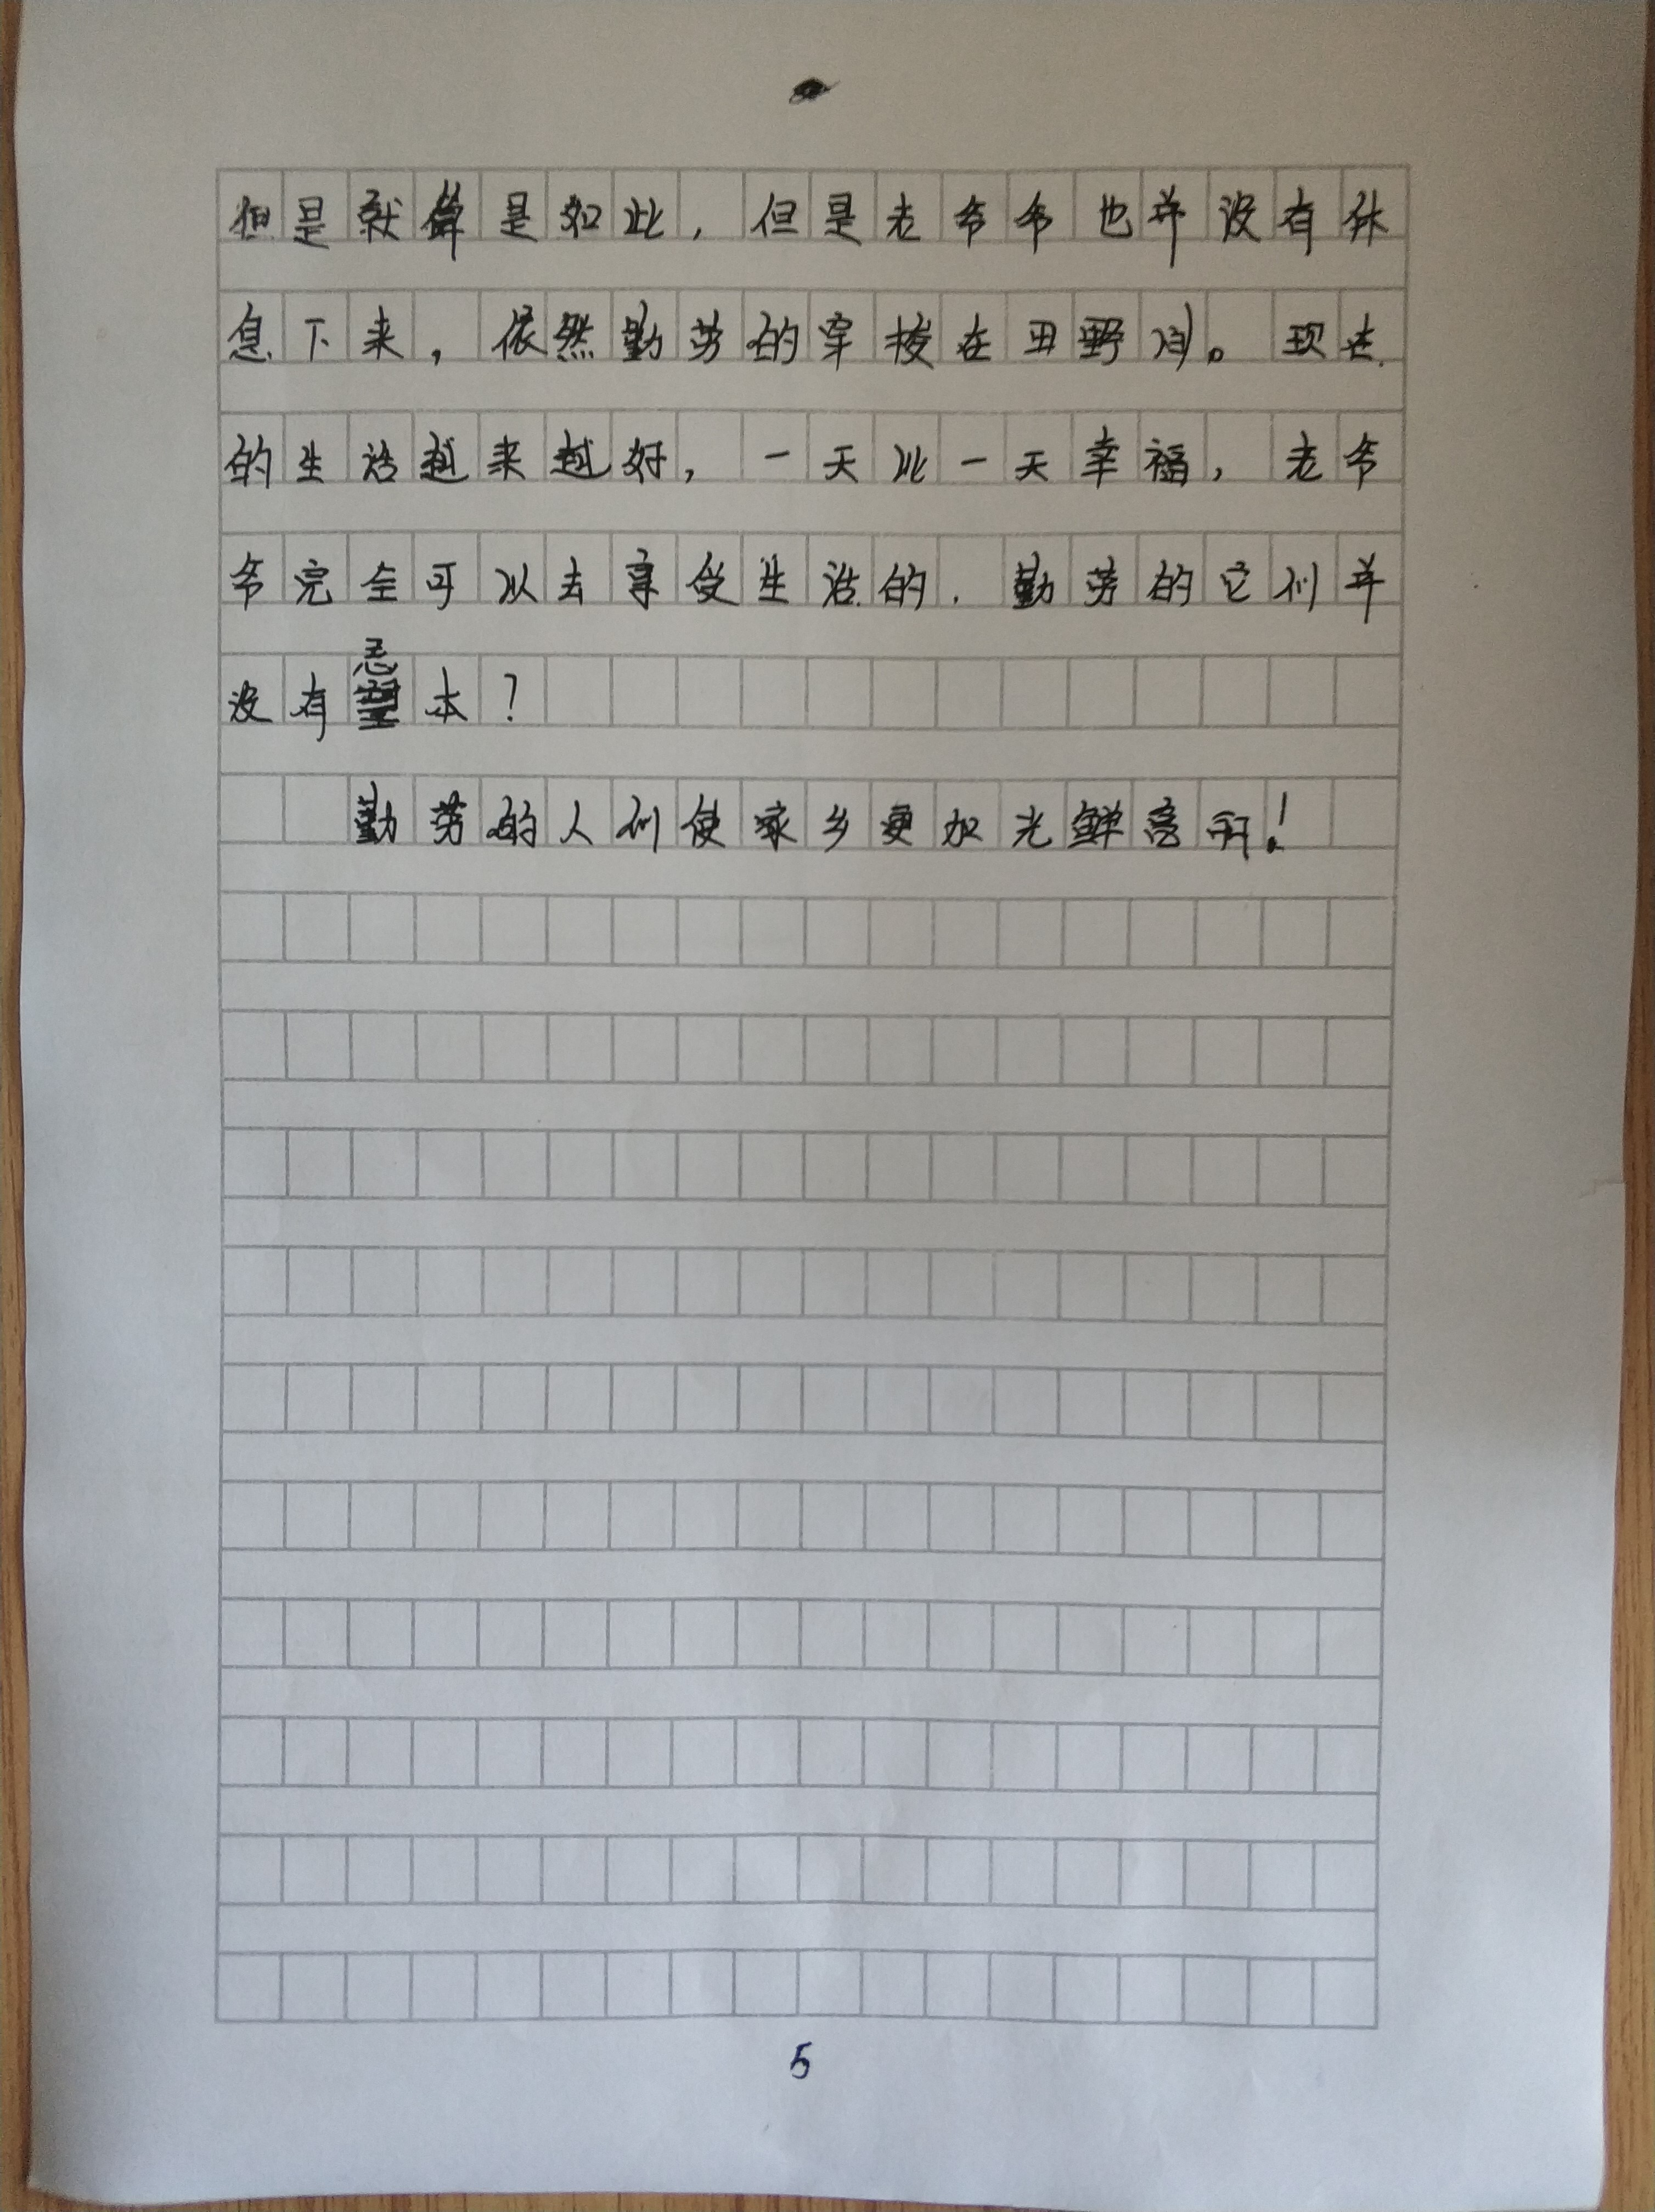 但是就算是如此，但是老爷爷也并没有休
息下来，依然勤劳的穿梭在田野间。现在
的生活越来越好，一天比一天幸福，老爷
爷完全可以去享受生活的．勤劳的它们并
没有忘本？
勤劳的人们使家乡更加光鲜亮丽！
5